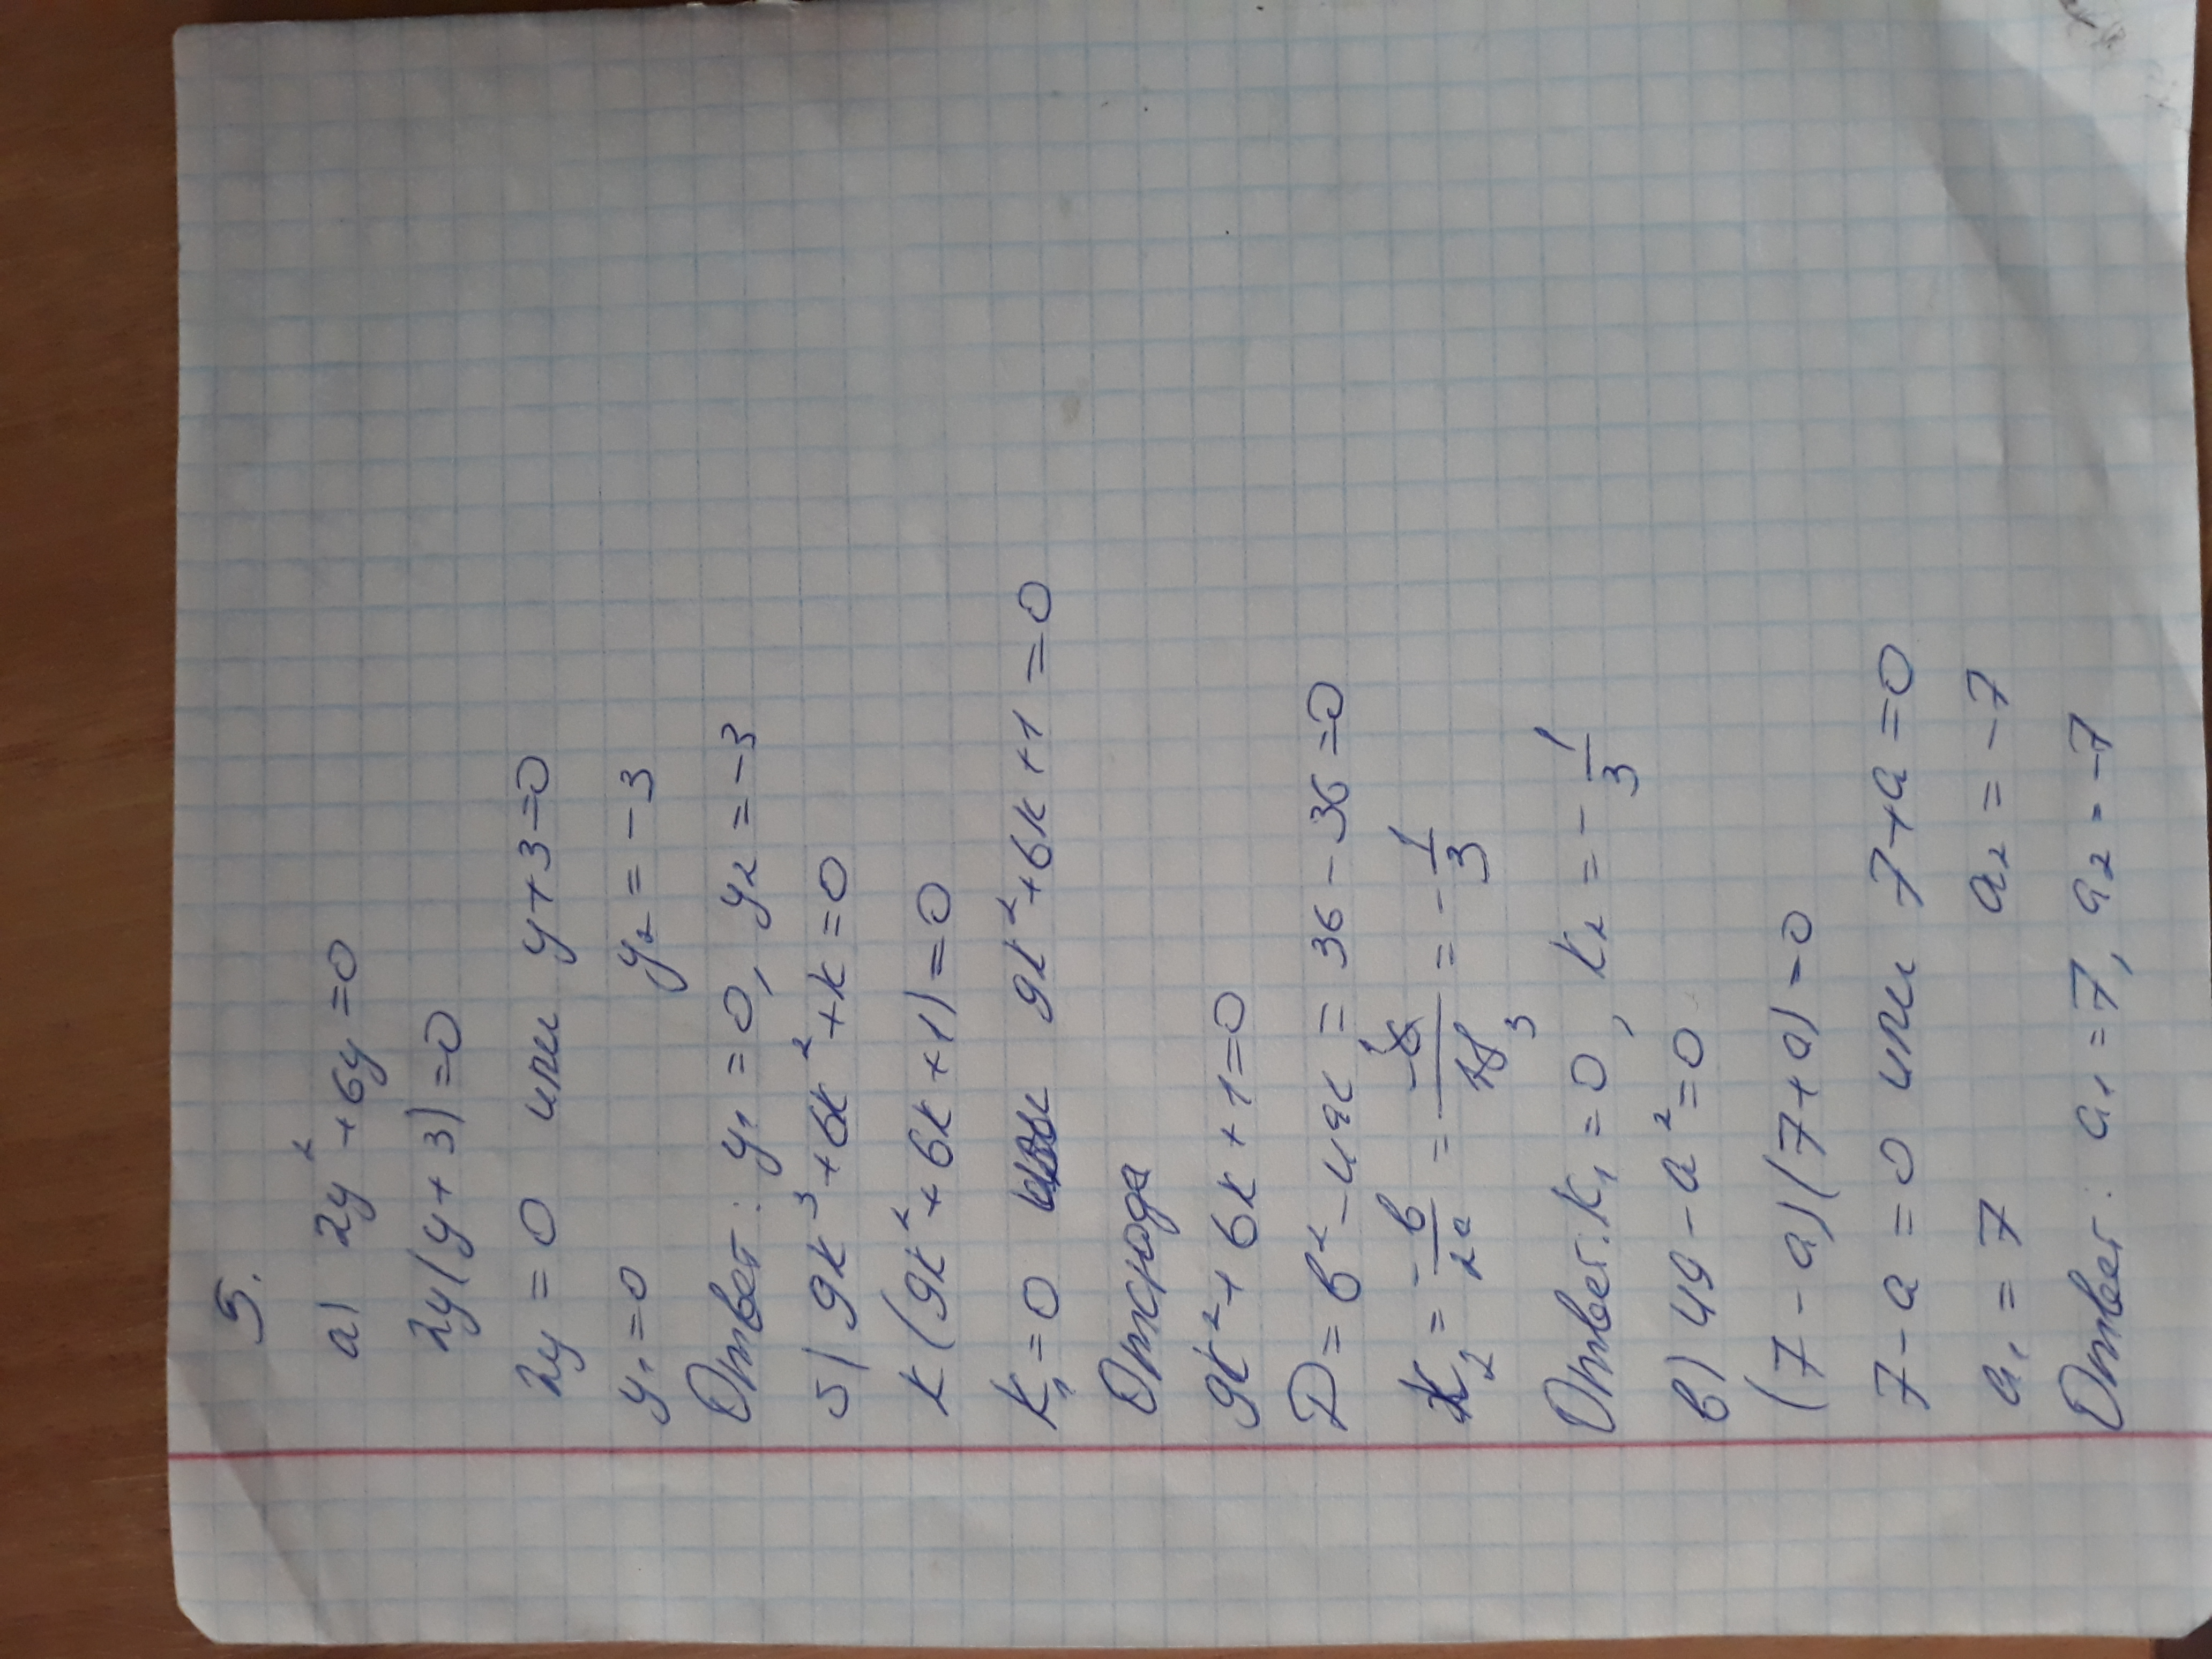 5.
а) 2y² + 6y = 0
2y(y + 3) = 0
2y = 0 или y + 3 = 0
y₁ = 0 y₂ = -3
Ответ: y₁ = 0, y₂ = -3
б) 9k³ + 6k² + k = 0
k(9k² + 6k + 1) = 0
k₁ = 0 или 9k² + 6k + 1 = 0
Отсюда
9k² + 6k + 1 = 0
D = b² - 4ac = 36 - 36 = 0
k₂ = -b/2a = -6/18 3 = -1/3
Ответ: k₁ = 0, k₂ = -1/3
в) 49 - a² = 0
(7 - a)(7 + a) = 0
7 - a = 0 или 7 + a = 0
a₁ = 7 a₂ = -7
Ответ: a₁ = 7, a₂ = -7